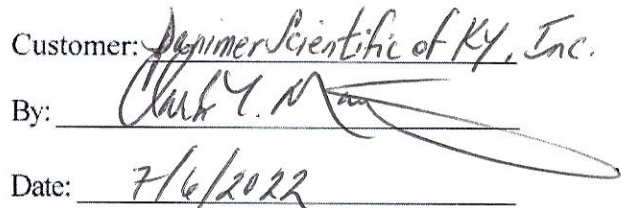 Customer: Danimer Scientific of KY, Inc.
By: Clark Y. May
Date: 7/6/2022